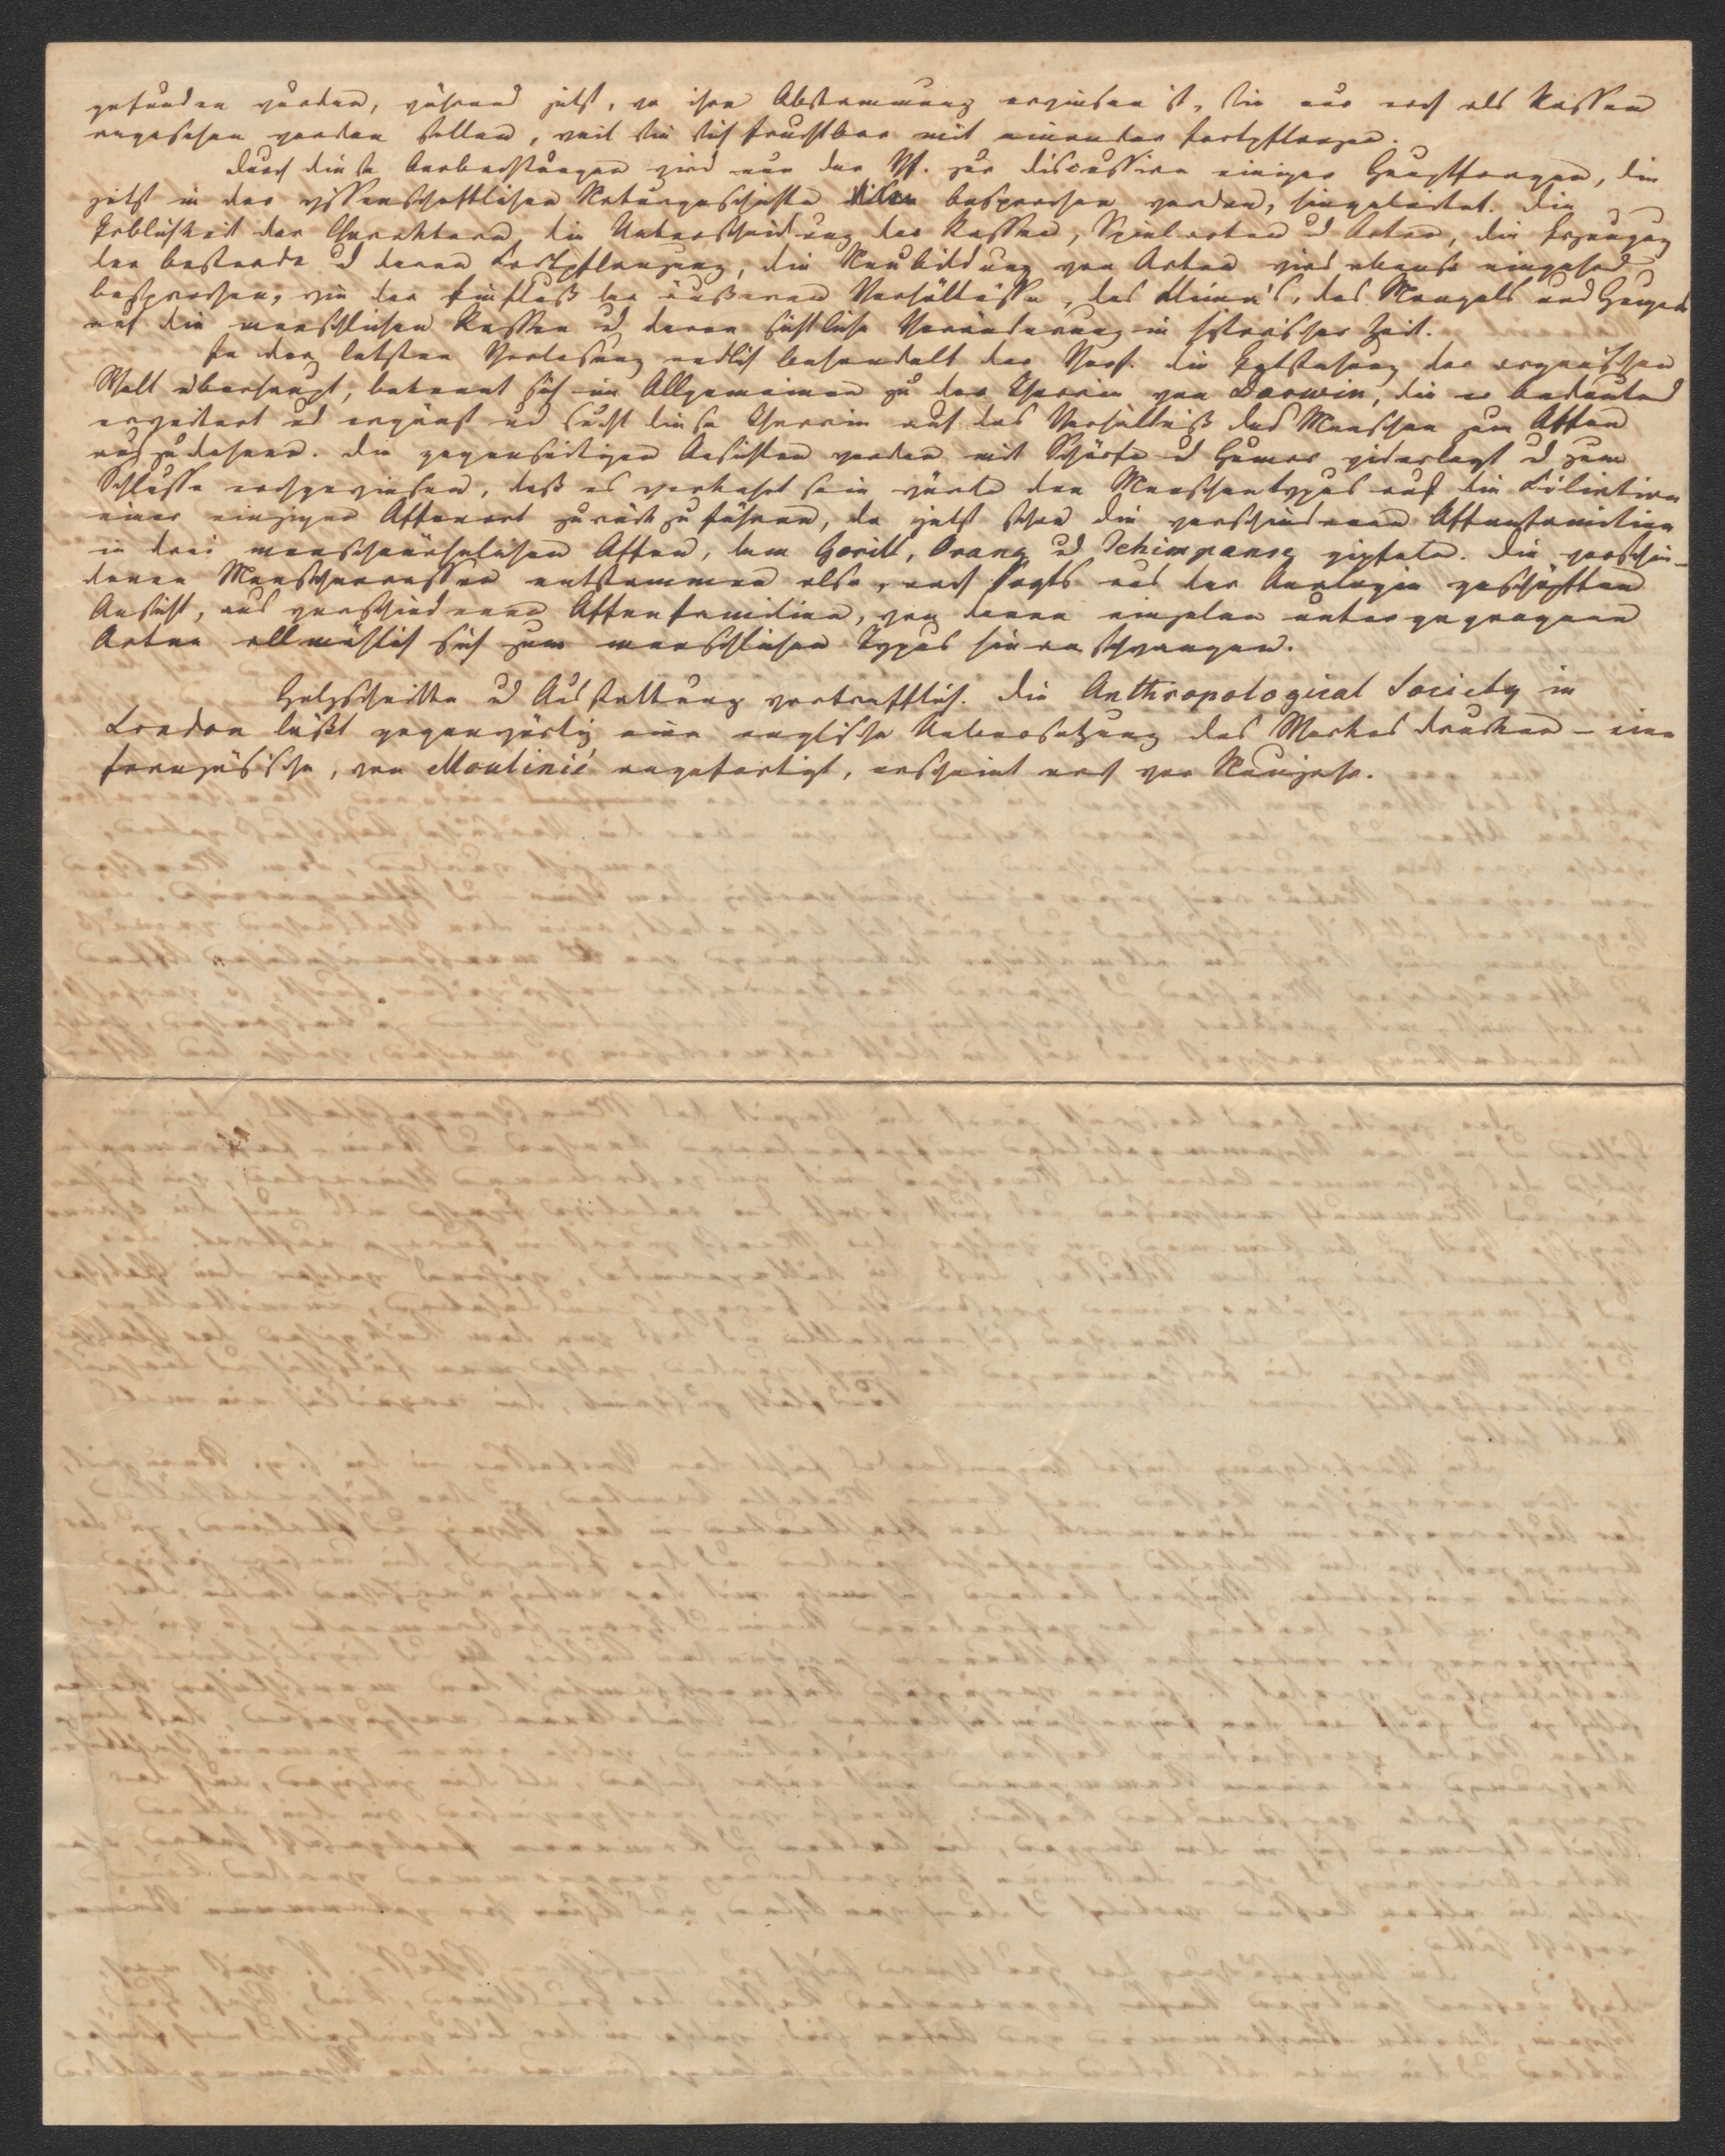 gefunden wurden, während jetzt, wo ihre Abstammung erwiesen ist, sie nur noch als Rassen
angesehen werden sollen, weil sie sich fruchtbar mit einander fortpflanzen.
Durch diese Beobachtungen wird nun der Vf. zur Discussion einiger Hauptfragen, die
jetzt in der wissenschaftlichen Naturgeschichte besprochen werden, hingeleitet. Die
Erblichkeit der Charaktere, die Unterscheidung der Rassen, Spielarten u Arten, die Erzeugung
der Bastarde u deren Fortpflanzung, die Neubildung von Arten wird ebenso eingehend
besprochen, wie der Einfluß der äußeren Verhältnisse, des Klima's, des Mangels und Hungers
auf die menschlichen Rassen u deren sichtliche Veränderung in historischer Zeit.
In der letzten Vorlesung endlich behandelt der Verf. die Entstehung der organischen
Welt überhaupt, bekennt sich im Allgemeinen zu der Theorie von Darwin, die er bedeutend
erweitert und ergänzt und sucht diese Theorie auf das Verhältniß des Menschen zum Affen
auszudehnen. Die gegenseitigen Ansichten werden mit Schärfe u Humor widerlegt u zum
Schlusse nachgewiesen, daß es verkehrt sein würde den Menschentypus auf die Filiation
einer einzigen Affenart zurück zu führen, da jetzt schon die verschiedenen Affenfamilien
in drei menschenähnlichen Affen, dem Gorill, Orang u Schimpanse gipfeln. Die verschie-
denen Menschenrassen entstammen also, nach Vogts aus der Analogie geschöpften
Ansicht, aus verschiedenen Affenfamilien, von denen einzelne untergegangene
Arten allmählich sich zum menschlichen Typus hinanschwangen.
Holzschnitte u Ausstattung vortrefflich. Die Anthropological Society in
London läßt gegenwärtig eine englische Uebersetzung des Werkes drucken – eine
französische, von Moulinié angefertigt, erscheint noch vor Neujahr.